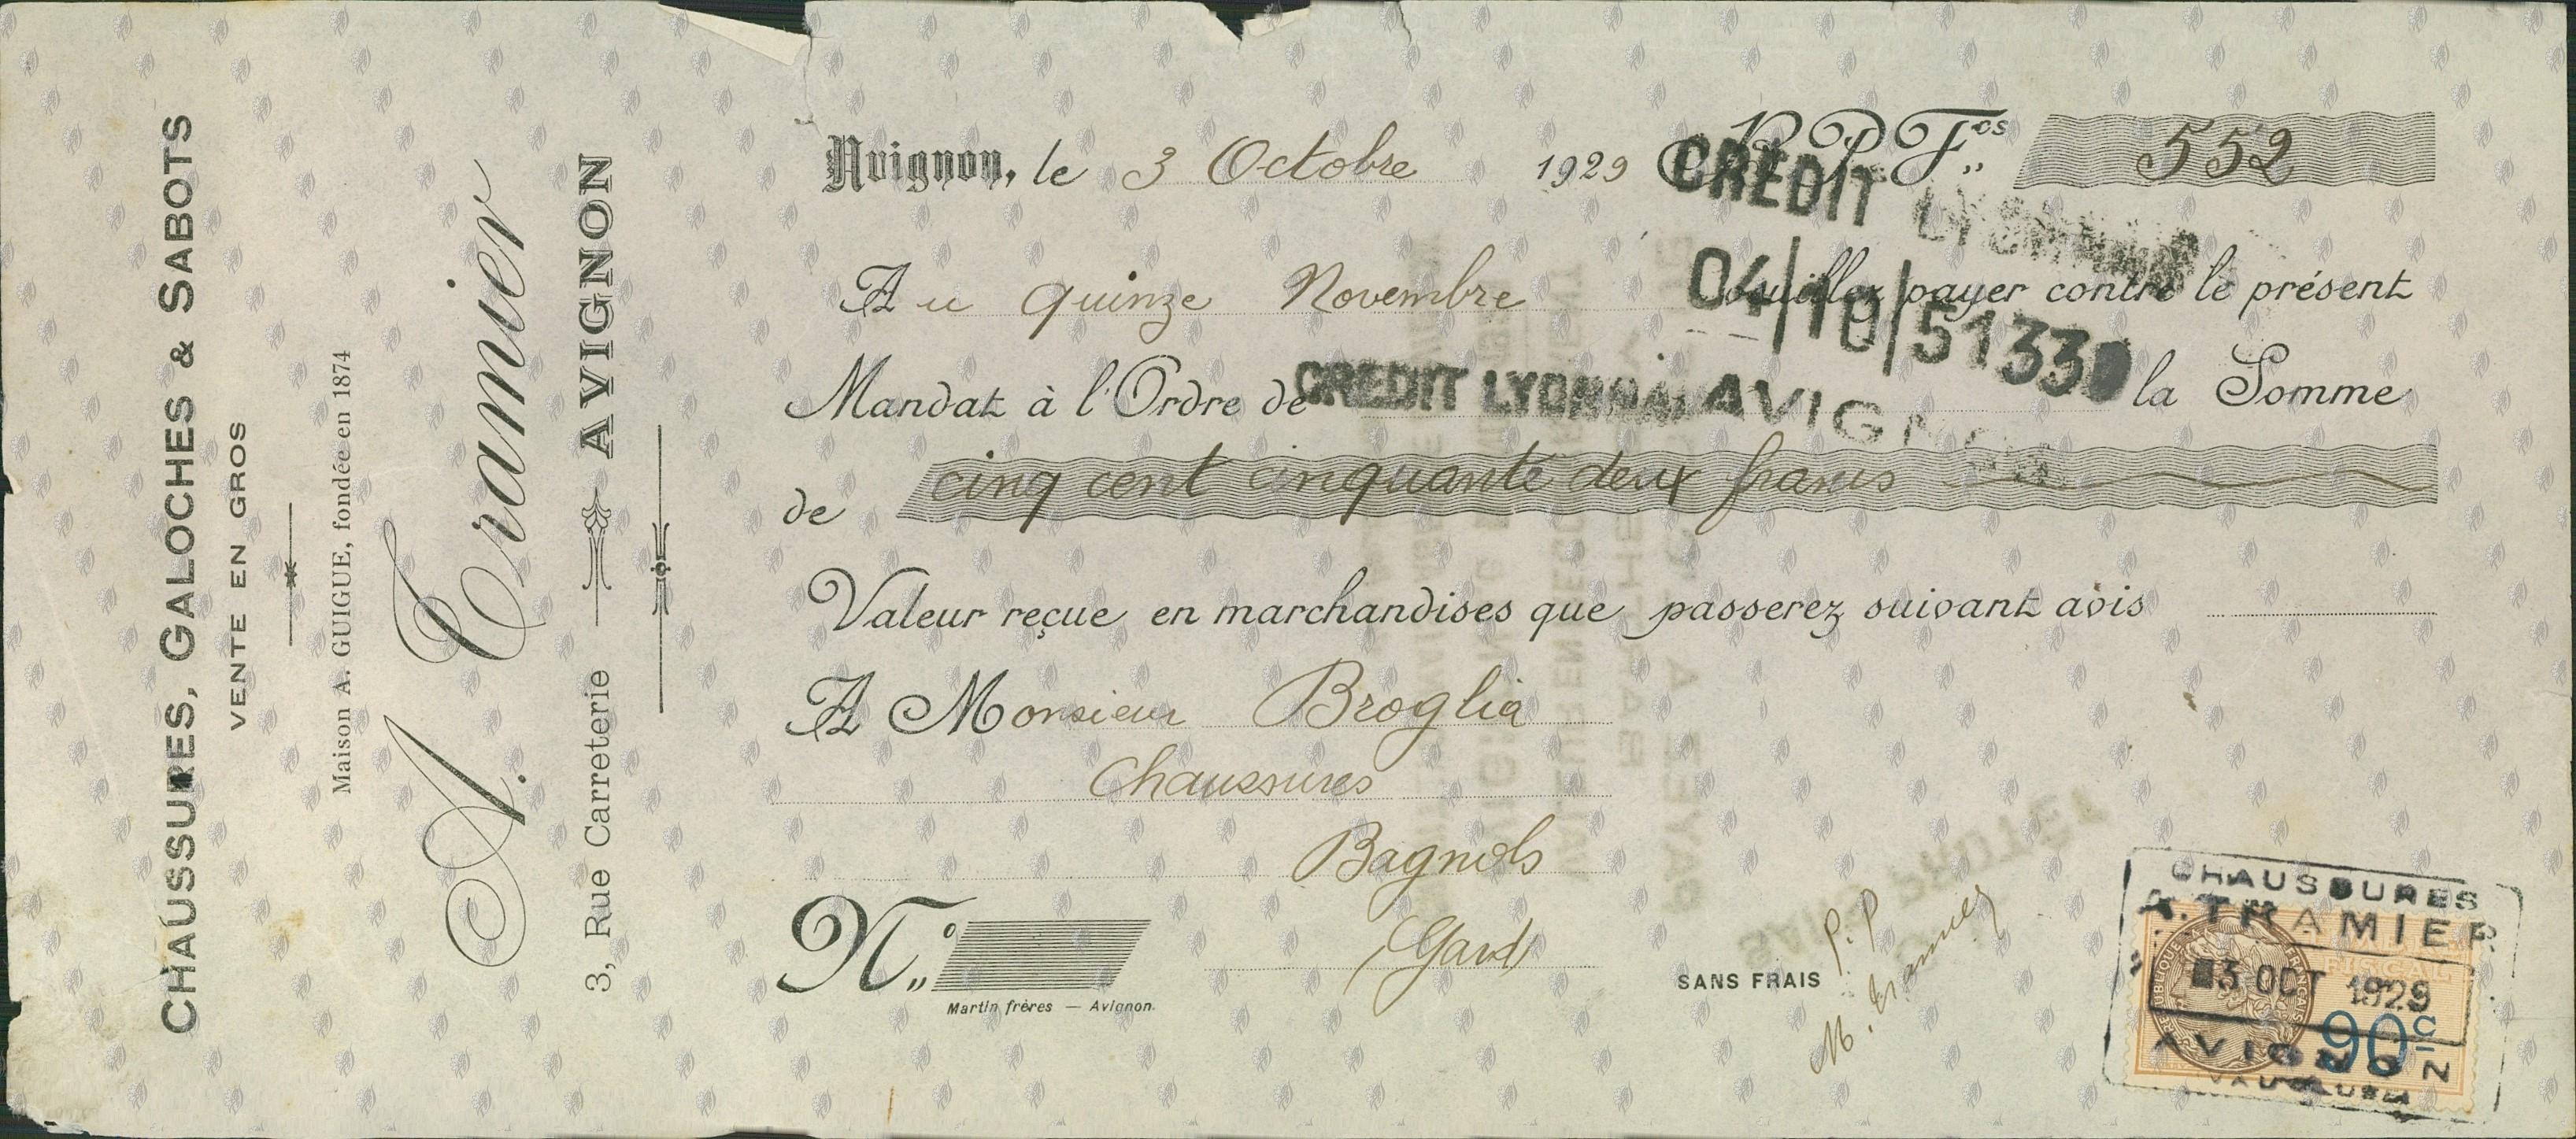 CHAUSSURES, GALOCHES & SABOTS
VENTE EN GROS
Maison A. GUIGUE, fondée en 1874
A. Tramier
3, Rue Carreterie AVIGNON
Avignon, le 3 Octobre 1929 B.P.F.os 552
CREDIT LYONNAIS
Au quinze Novembre veuillez payer contre le présent
04/10/51330
Mandat à l'Ordre de CREDIT LYONNAIS AVIGNON la Somme
de cinq cent cinquante deux francs
Valeur reçue en marchandises que passerez suivant avis
A Monsieur Broglia
Chaussures
Bagnols
Gard
N.o
Martin frères — Avignon.
SANS FRAIS
P. P
M. Tramier
CHAUSSURES
A. TRAMIER
3 OCT 1929
90c
AVIGNON
VAUCLUSE